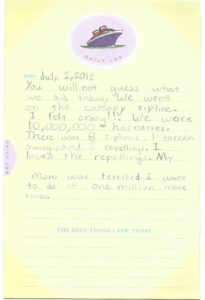 DAILY LOG
DATE July 2, 2012
You will not guess what
we did today. We went
on the canopy zipline.
I felt crazy!!! We wore
10,000,000 harnesses.
There was 8 ziplines, 1 tarzan
swing, and 2 repellings. I
loved the repellings. My
mom was terrified. I want
to do it one million more
times.
DAILY LOG
THE BEST THING I SAW TODAY